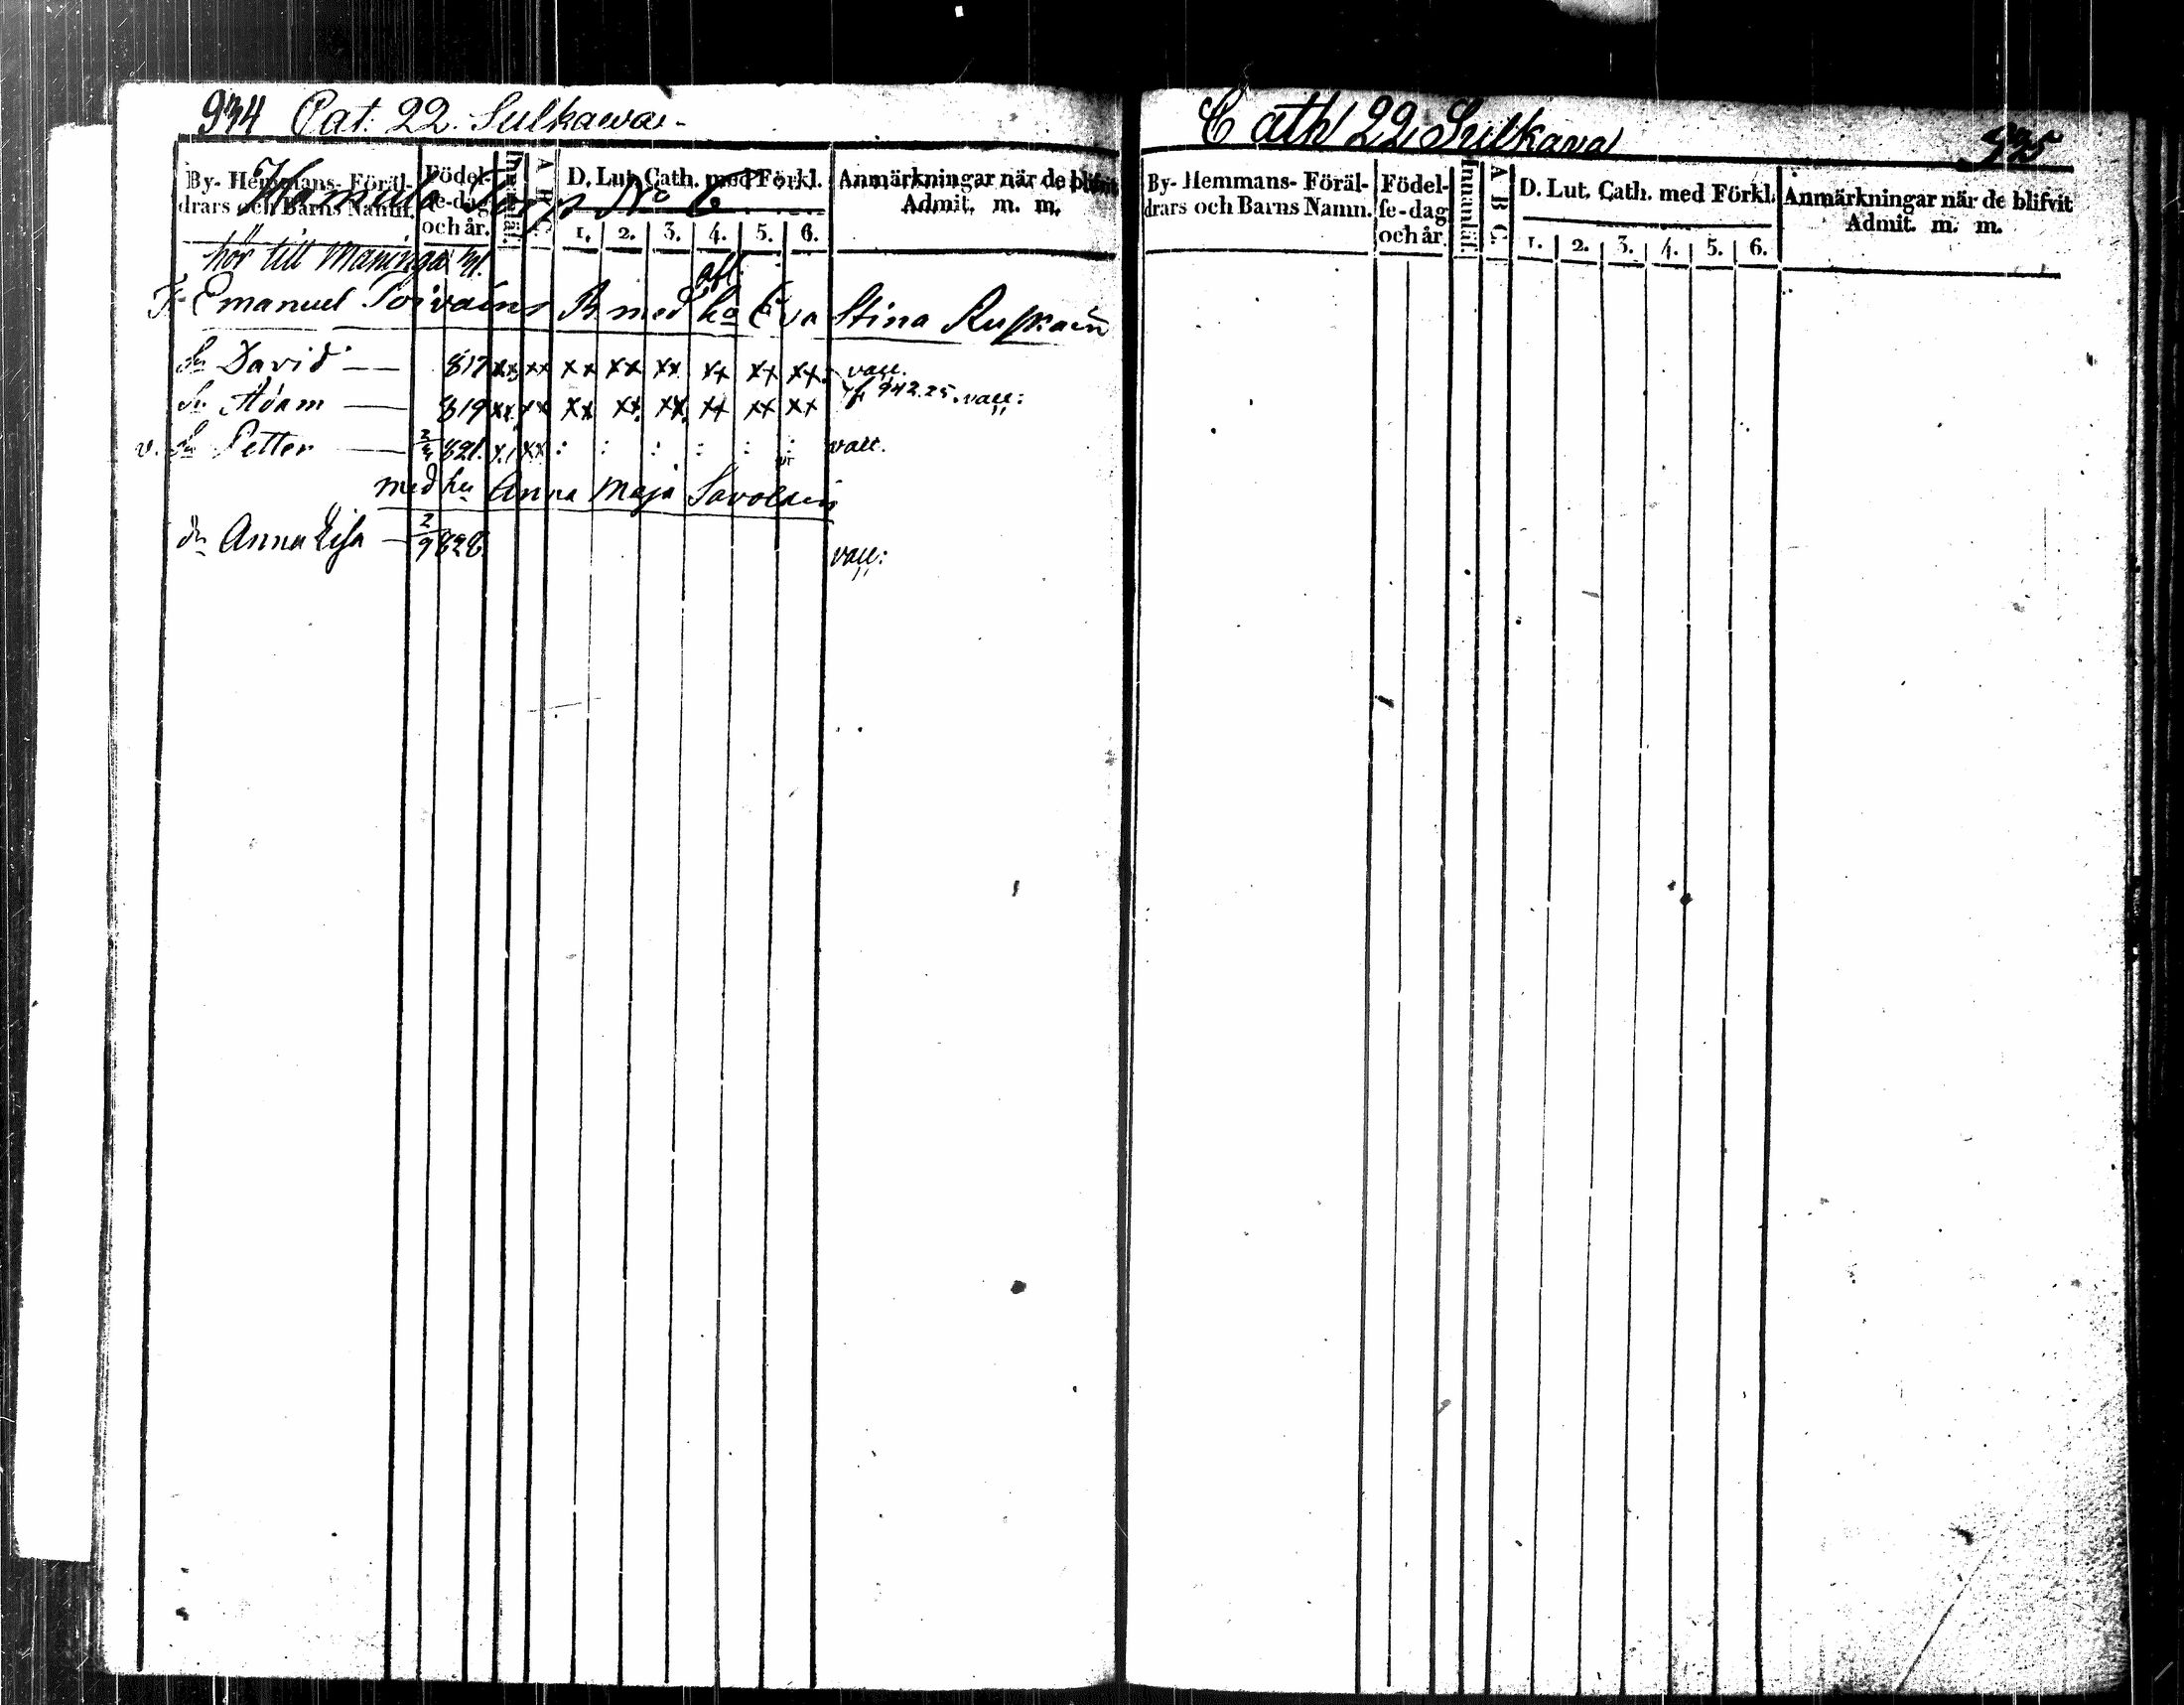 934 Cat. 22. Sulkawa
By- Hemmans- Föräl-
drars och Barns Namn.
Födel-
se-dag
och år.
Innanläs.
A B C.
D. Lut. Cath. med Förkl.
1. 2. 3. 4. 5. 6.
Anmärkningar när de blifvit
Admit. m. m.
No 6
hör till Maninga
Emanuel Toivain med Eva Stina Ruskain
afl.
Sn David — 817 xx xx xx xx xx xx xx xx vacc.
Sn Adam — 819 xx xx xx xx xx xx xx xx 942.25. vacc:
v. Sn Petter — 821. xx : : : : : : vacc.
med hu Anna Maja Savolain
dr Anna Lisa — 2/9 828. vacc:
Cath 22 Sulkava 935
By- Hemmans- Föräl-
drars och Barns Namn.
Födel-
se-dag
och år.
Innanläs.
A B C.
D. Lut. Cath. med Förkl.
1. 2. 3. 4. 5. 6.
Anmärkningar när de blifvit
Admit. m. m.